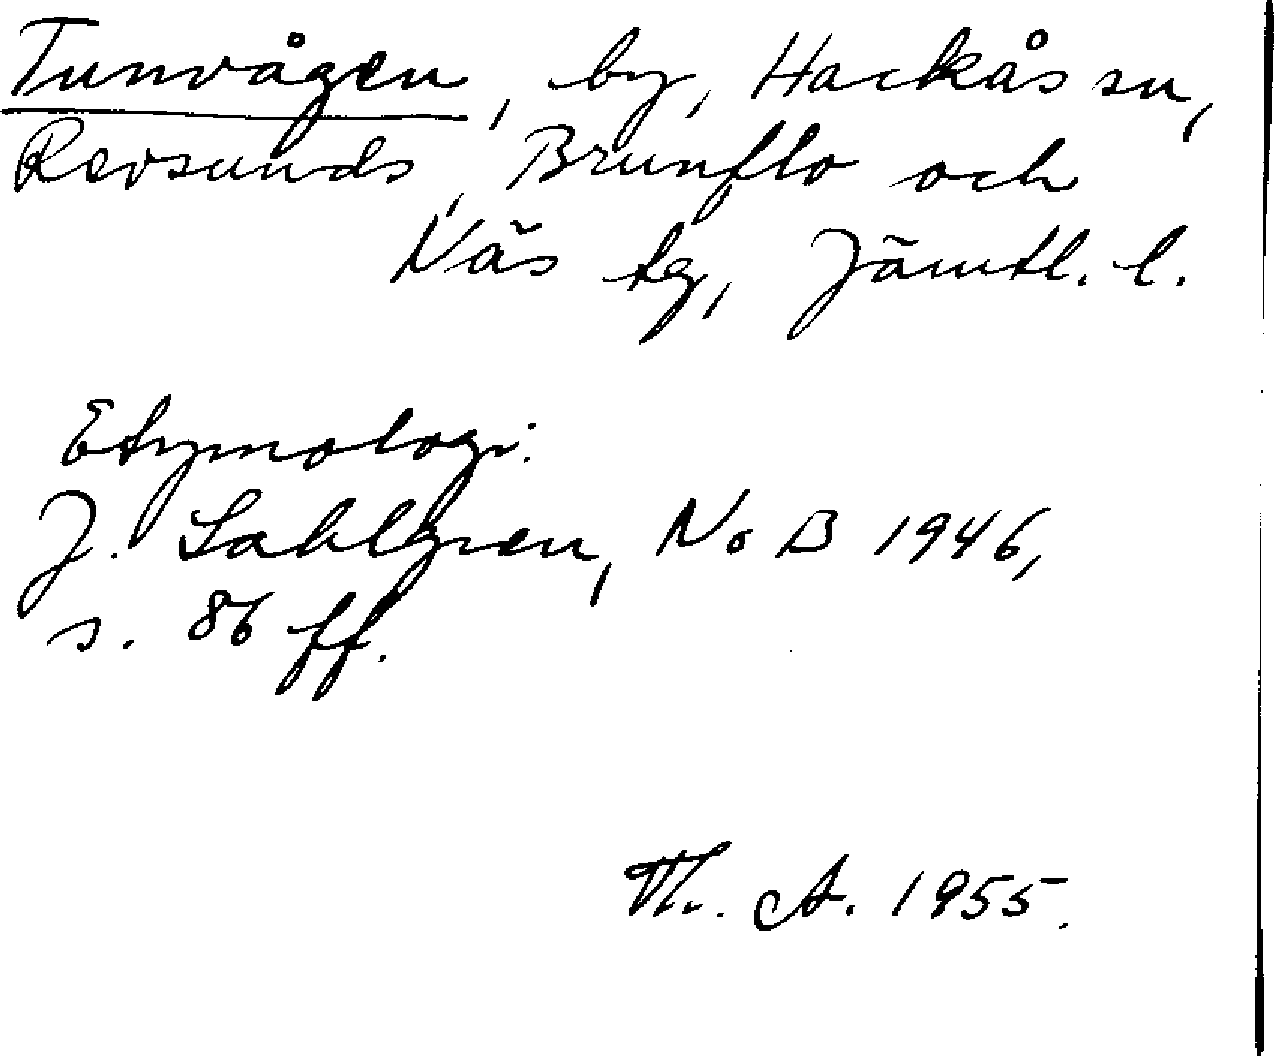 Tunvågen, by, Hackås sn,
Revsunds, Brunflo och
Näs tg, Jämtl. l.
Etymologi:
J. Sahlgren, NoB 1946,
s. 86 ff.
Th. A. 1955.